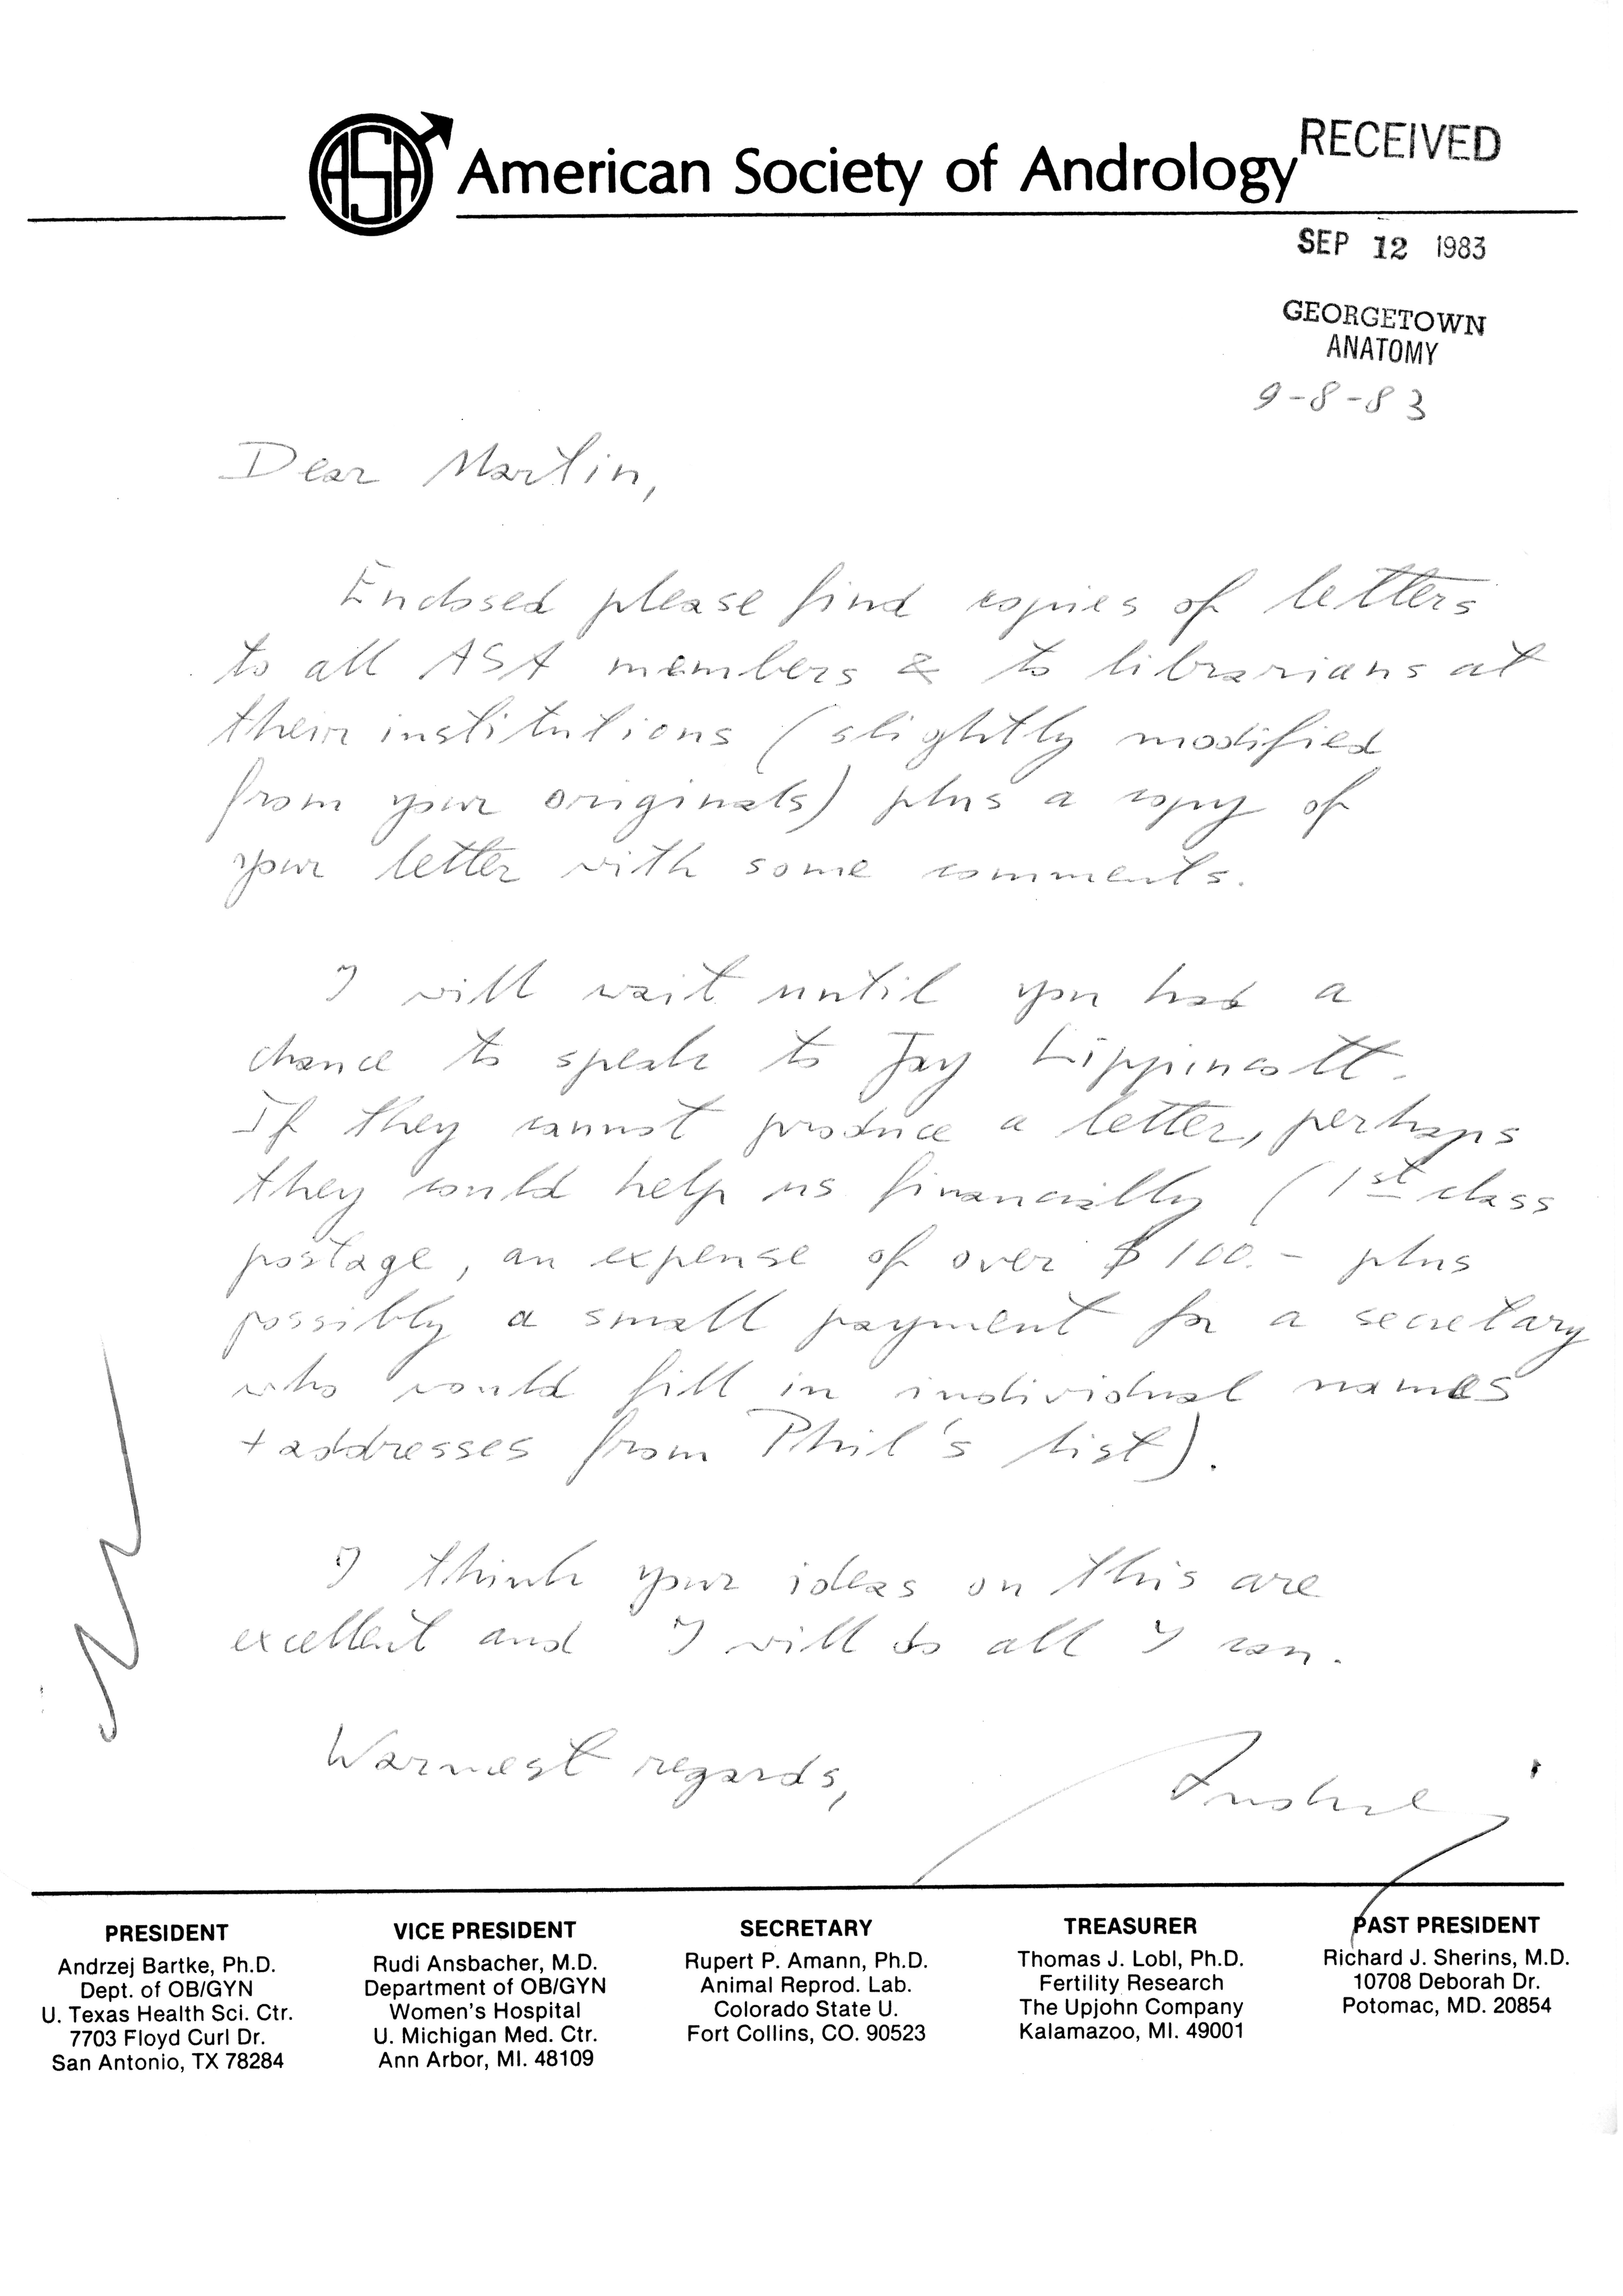 ASA American Society of Andrology
RECEIVED
SEP 12 1983
GEORGETOWN
ANATOMY
9-8-83
Dear Martin,
Enclosed please find copies of letters
to all ASA members & to librarians at
their institutions (slightly modified
from your originals) plus a copy of
your letter with some comments.
I will wait until you had a
chance to speak to Jay Lippincott.
If they cannot produce a letter, perhaps
they could help us financially (1st class
postage, an expense of over $100.- plus
possibly a small payment for a secretary
who would fill in individual names
+ addresses from Phil's list).
I think your ideas on this are
excellent and I will do all I can.
Warmest regards,
Andrzej
PRESIDENT
Andrzej Bartke, Ph.D.
Dept. of OB/GYN
U. Texas Health Sci. Ctr.
7703 Floyd Curl Dr.
San Antonio, TX 78284
VICE PRESIDENT
Rudi Ansbacher, M.D.
Department of OB/GYN
Women's Hospital
U. Michigan Med. Ctr.
Ann Arbor, MI. 48109
SECRETARY
Rupert P. Amann, Ph.D.
Animal Reprod. Lab.
Colorado State U.
Fort Collins, CO. 90523
TREASURER
Thomas J. Lobl, Ph.D.
Fertility Research
The Upjohn Company
Kalamazoo, MI. 49001
PAST PRESIDENT
Richard J. Sherins, M.D.
10708 Deborah Dr.
Potomac, MD. 20854